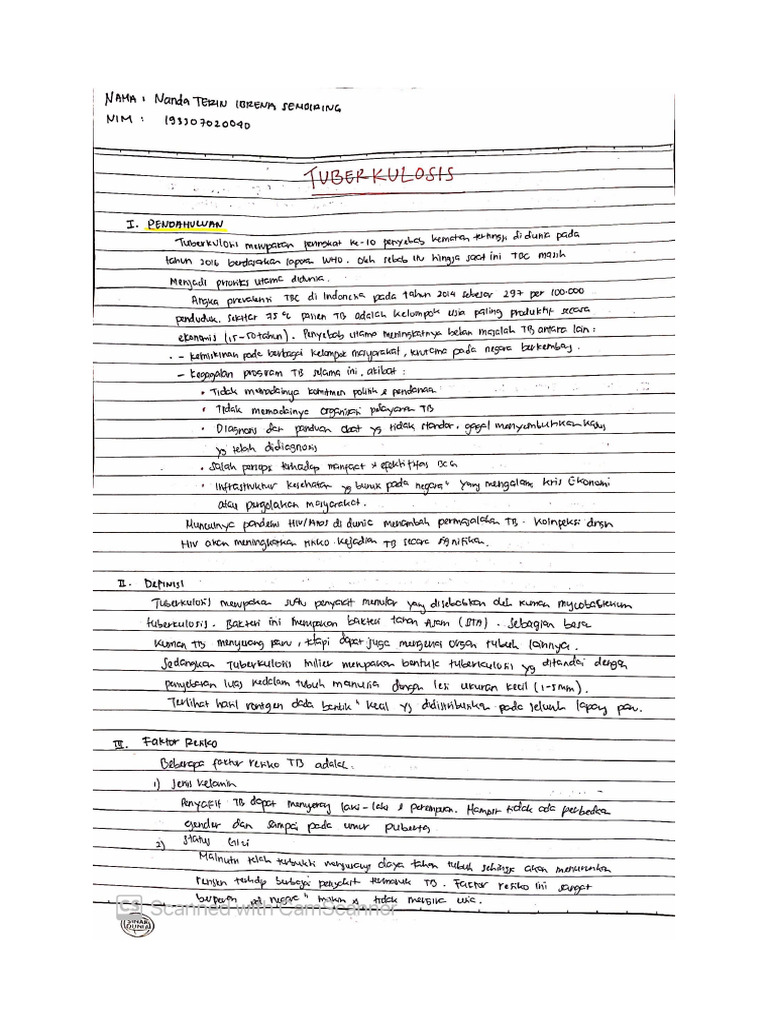 NAMA : Nanda TERIN IBRENA SEMBIRING
NIM : 193307020040
TUBERKULOSIS
I. PENDAHULUAN
Tuberkulosis merupakan peringkat ke-10 penyebab kematian tertinggi di dunia pada
tahun 2016 berdasarkan laporan WHO. Oleh sebab itu hingga saat ini TBC masih
Menjadi prioritas utama didunia.
Angka prevalensi TBC di Indonesia pada tahun 2014 sebesar 297 per 100.000
penduduk. Sekitar 75% pasien TB adalah kelompok usia paling produktif secara
ekonomis (15-50 tahun). Penyebab utama meningkatnya beban masalah TB antara lain :
- Kemiskinan pada berbagai kelompok masyarakat, terutama pada negara berkembang.
- Kegagalan program TB selama ini, akibat :
• Tidak memadainya komitmen politik & pendanaan
• Tidak memadainya organisasi pelayanan TB
• Diagnosis dan panduan obat yg tidak standar, gagal menyembuhkan kasus
yg telah didiagnosis
• Salah persepsi terhadap manfaat & efektifitas BCG
• Infrastruktur kesehatan yg buruk pada negara" yang mengalami krisis Ekonomi
atau pergolakan masyarakat.
Munculnya pandemi HIV/AIDS di dunia menambah permasalahan TB. Koinpeksi dngn
HIV akan meningkatkan risiko kejadian TB secara signifikan.
II. DEFINISI
Tuberkulosis merupakan suatu penyakit menular yang disebabkan oleh kuman mycobacterium
tuberkulosis. Bakteri ini merupakan bakteri tahan Asam (BTA). Sebagian besar
kuman TB menyerang paru, tetapi dapat juga mengenai organ tubuh lainnya.
Sedangkan Tuberkulosis Milier merupakan bentuk tuberculosis yg ditandai dengan
penyebaran luas kedalam tubuh manusia dengan lesi ukuran kecil (1-5mm).
Terlihat hasil rontgen dada bintik" kecil yg didistribusikan pada seluruh lapang paru.
III. Faktor Resiko
Beberapa faktor resiko TB adalah :
1) Jenis Kelamin
Penyakit TB dapat menyerang laki-laki & perempuan. Hampir tidak ada perbedaan
gender dan sampai pada umur pubertas
2) Status Gizi
Malnutrisi telah terbukti mengurangi daya tahan tubuh sehingga akan menurunkan
resisten terhdp berbagai penyakit termasuk TB. Factor resiko ini sangat
berperan negara" miskin & tidak mengira usia.
CS Scanned with CamScanner
SINAR DUNIA